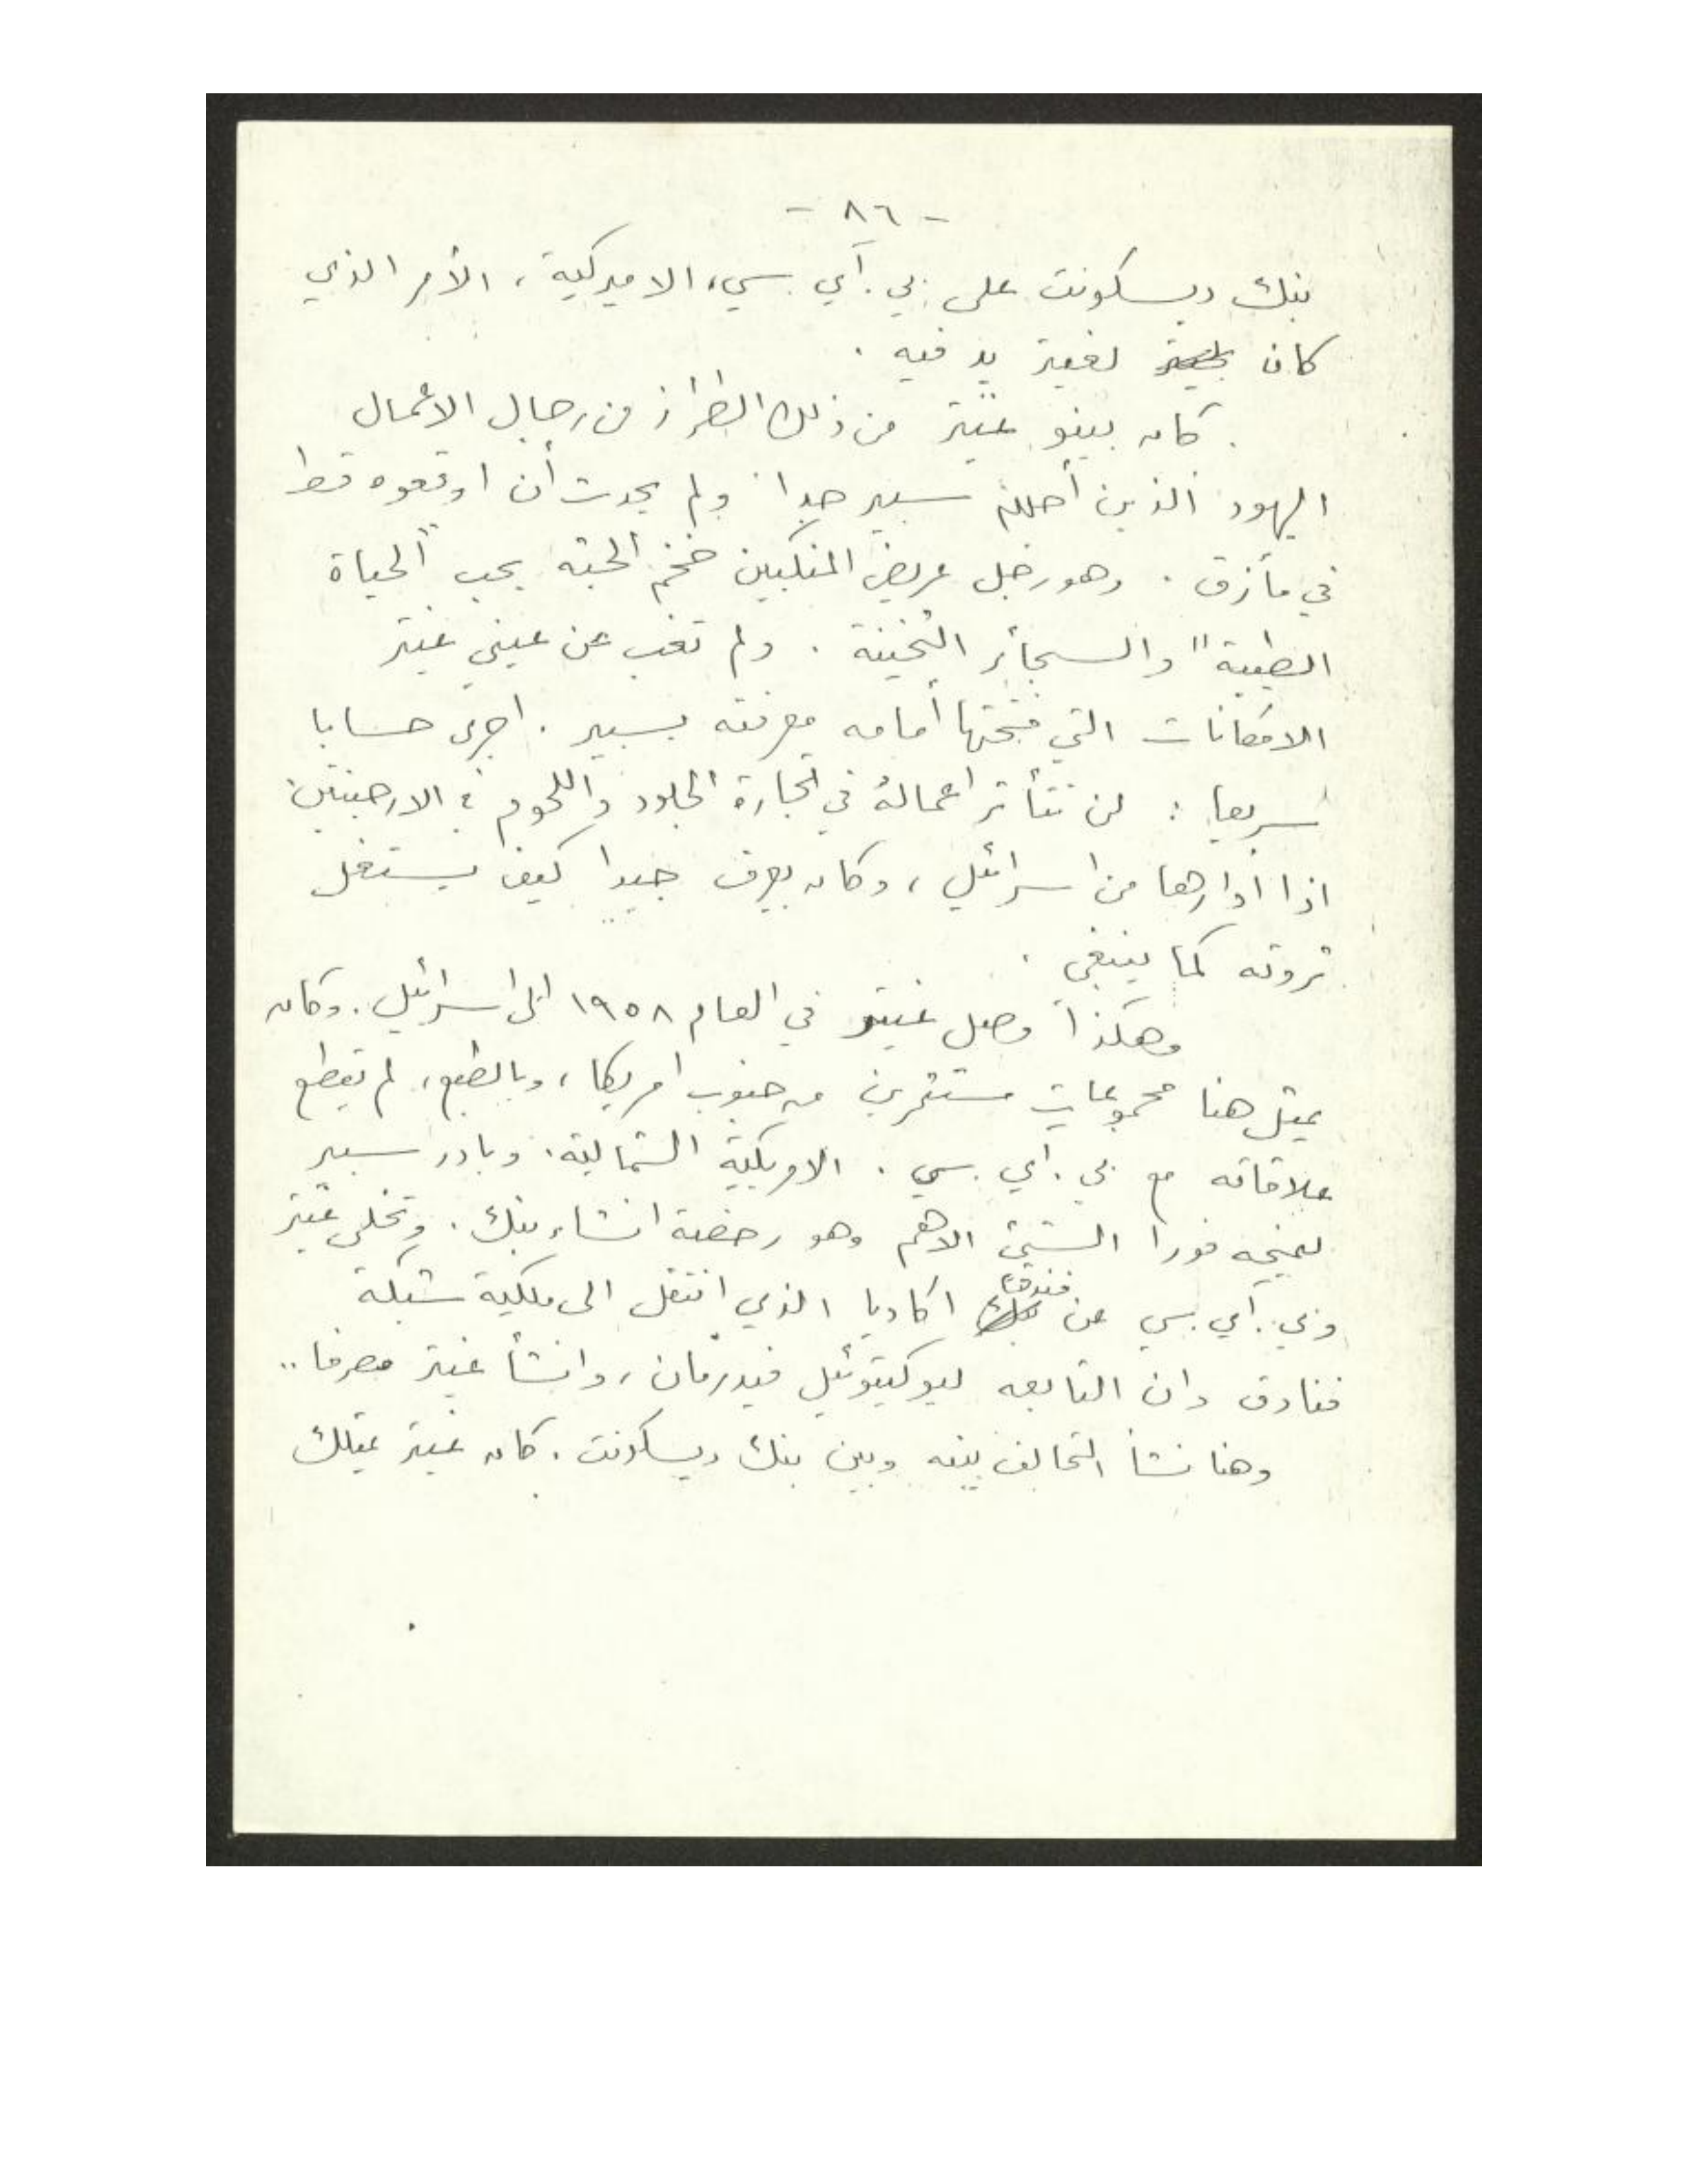 - ٨٦ -
بنك ديسكونت على بي. آي. سي، الاميركية، الأمر الذي
كان لغيتر يد فيه .
كان بينو غيتر من ذلك الطراز من رجال الاعمال
اليهود الذين أحبهم سبير جدا ولم يحدث أن اوقعوه قط
في مأزق . وهو رجل عريض المنكبين ضخم الجثة يحب "الحياة
الطيبة" والسجائر الثخينة . ولم تغب عن عيني غيتر
الامكانات التي فتحتها أمامه معرفته بسبير . اجرى حسابا
سريعا : لن تتأثر اعماله في تجارة الجلود واللحوم في الارجنتين
اذا أدارها من اسرائيل ، وكان يعرف جيدا كيف يستغل
ثروته كما ينبغي .
وهكذا وصل غيتر في العام ١٩٥٨ الى اسرائيل . وكان
يمثل هنا مجموعات مستثمرين من جنوب امريكا ، وبالطبع ، لم يقطع
علاقاته مع بي. آي. سي . الامريكية الشمالية . وبادر سبير
لمنحه فورا الشيئ الاهم وهو رخصة انشاء بنك . وتخلى غيتر
وبي. آي. سي عن فندق اكاديا الذي انتقل الى ملكية شبكة
فنادق دان التابعه ليوكيتوئيل فيدرمان ، وانشأ غيتر مصرفا ..
وهنا نشأ التحالف بينه وبين بنك ديسكونت . كان غيتر يمتلك